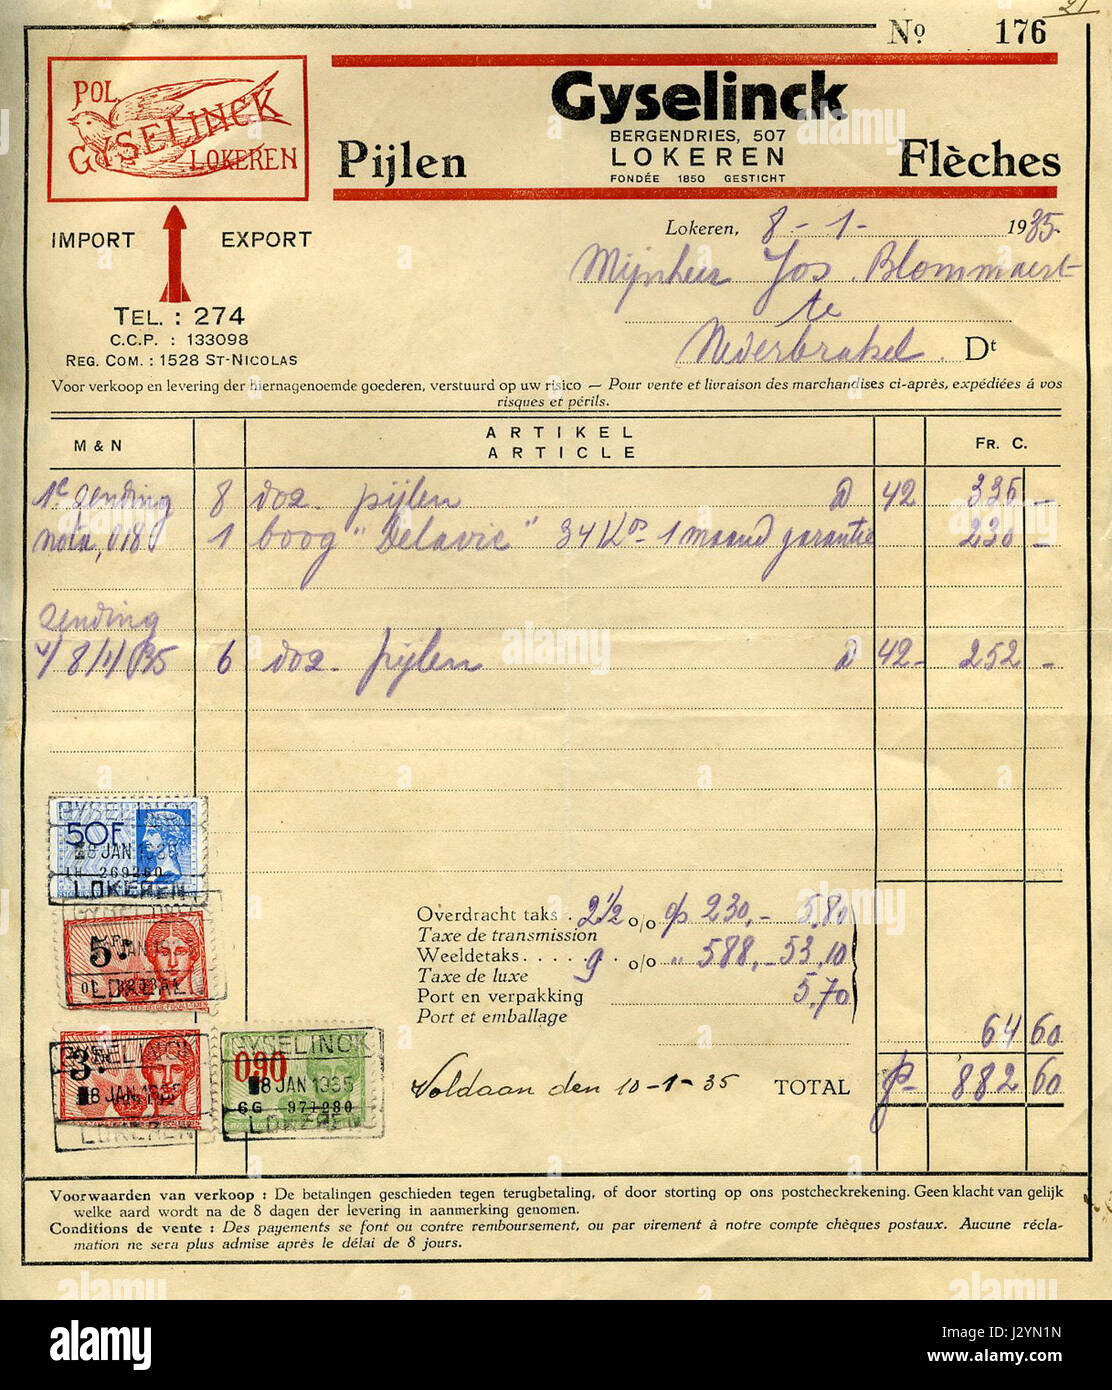 21
No 176
POL
GYSELINCK
LOKEREN
Gyselinck
BERGENDRIES, 507
LOKEREN
FONDÉE 1850 GESTICHT
Pijlen
Flèches
IMPORT EXPORT
TEL. : 274
C.C.P. : 133098
REG. COM. : 1528 ST-NICOLAS
Lokeren, 8 - 1 - 1935.
Mijnheer Jos. Blommaert
te
Nederbrakel. Dt
Voor verkoop en levering der hiernagenoemde goederen, verstuurd op uw risico — Pour vente et livraison des marchandises ci-après, expédiées á vos
risques et périls.
M & N ARTIKEL FR. C.
ARTICLE
1e zending 8 doz. pijlen à 42 336 -
nota, 018 1 boog "Delavie" 34 Kos 1 maand garantie 230 -
zending
v/ 8/1/35 6 doz. pijlen à 42- 252 -
GYSELINCK
50F
8 JAN 1935
1H 269260
LOKEREN
5Fr
JAN
LOKEREN
3Fr
GYSELINCK
8 JAN 1935
LOKEREN
GYSELINCK
0,90
8 JAN 1935
6G 971280
LOKEREN
Overdracht taks . 2 1/2 o/o op 230,- 5.80
Taxe de transmission
Weeldetaks . . . . . 9 o/o " 588,- 53,10
Taxe de luxe
Port en verpakking 5,70
Port et emballage
64 60
Voldaan den 10-1-35 TOTAL 882 60
Voorwaarden van verkoop : De betalingen geschieden tegen terugbetaling, of door storting op ons postcheckrekening. Geen klacht van gelijk
welke aard wordt na de 8 dagen der levering in aanmerking genomen.
Conditions de vente : Des payements se font ou contre remboursement, ou par virement à notre compte chèques postaux. Aucune récla-
mation ne sera plus admise après le délai de 8 jours.
alamy
Image ID: J2YN1N
www.alamy.com